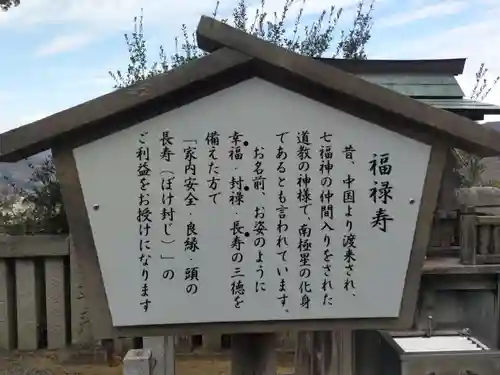 福禄寿
昔、中国より渡来され、
七福神の仲間入りをされた
道教の神様で、南極星の化身
であるとも言われています。
お名前、お姿のように
幸福・封禄・長寿の三徳を
備えた方で
「家内安全・良縁・頭の
長寿（ぼけ封じ）」の
ご利益をお授けになります